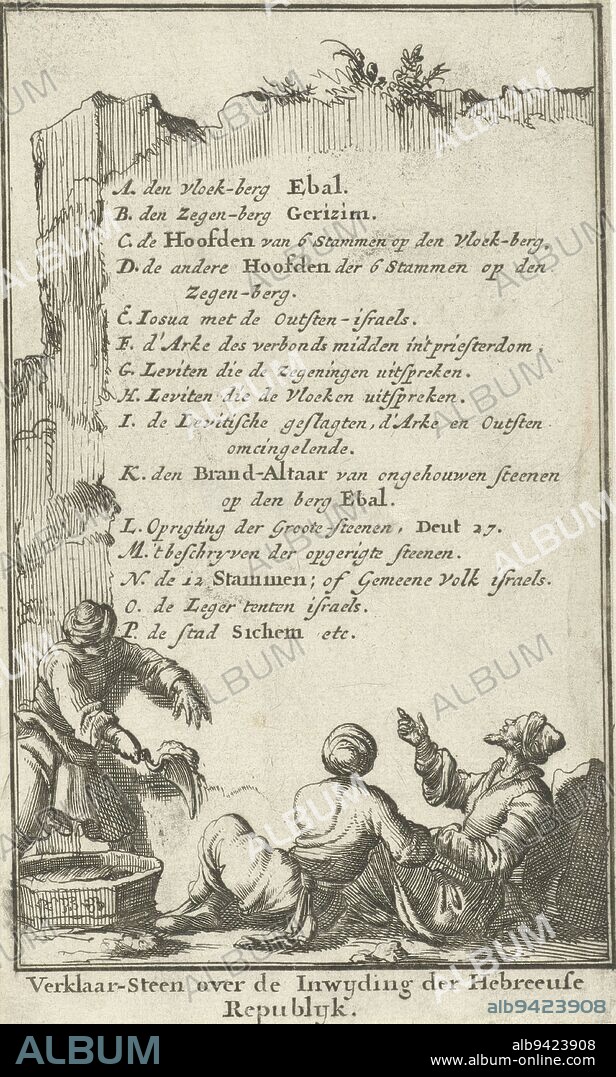 A. den vloek-berg Ebal.
B. den Zegen-berg Gerizim.
C. de Hoofden van 6 Stammen op den Vloek-berg.
D. de andere Hoofden der 6 Stammen op den
Zegen-berg.
E. Iosua met de Outsten-israels.
F. d'Arke des verbonds midden in't priesterdom,
G. Leviten die de Zegeningen uitspreken.
H. Leviten die de Vloeken uitspreken.
I. de Levitische geslagten, d'Arke en Outsten
omcingelende.
K. den Brand-Altaar van ongehouwen steenen
op den berg Ebal.
L. Oprigting der Groote-steenen, Deut 27.
M. 't beschryven der opgerigte steenen.
N. de 12 Stammen; of Gemeene Volk israels.
O. de Leger tenten israels.
P. de stad Sichem etc.
Verklaar-Steen over de Inwyding der Hebreeuse
Republyk.
alb9423908
ALBUM
alb9423908
www.album-online.com